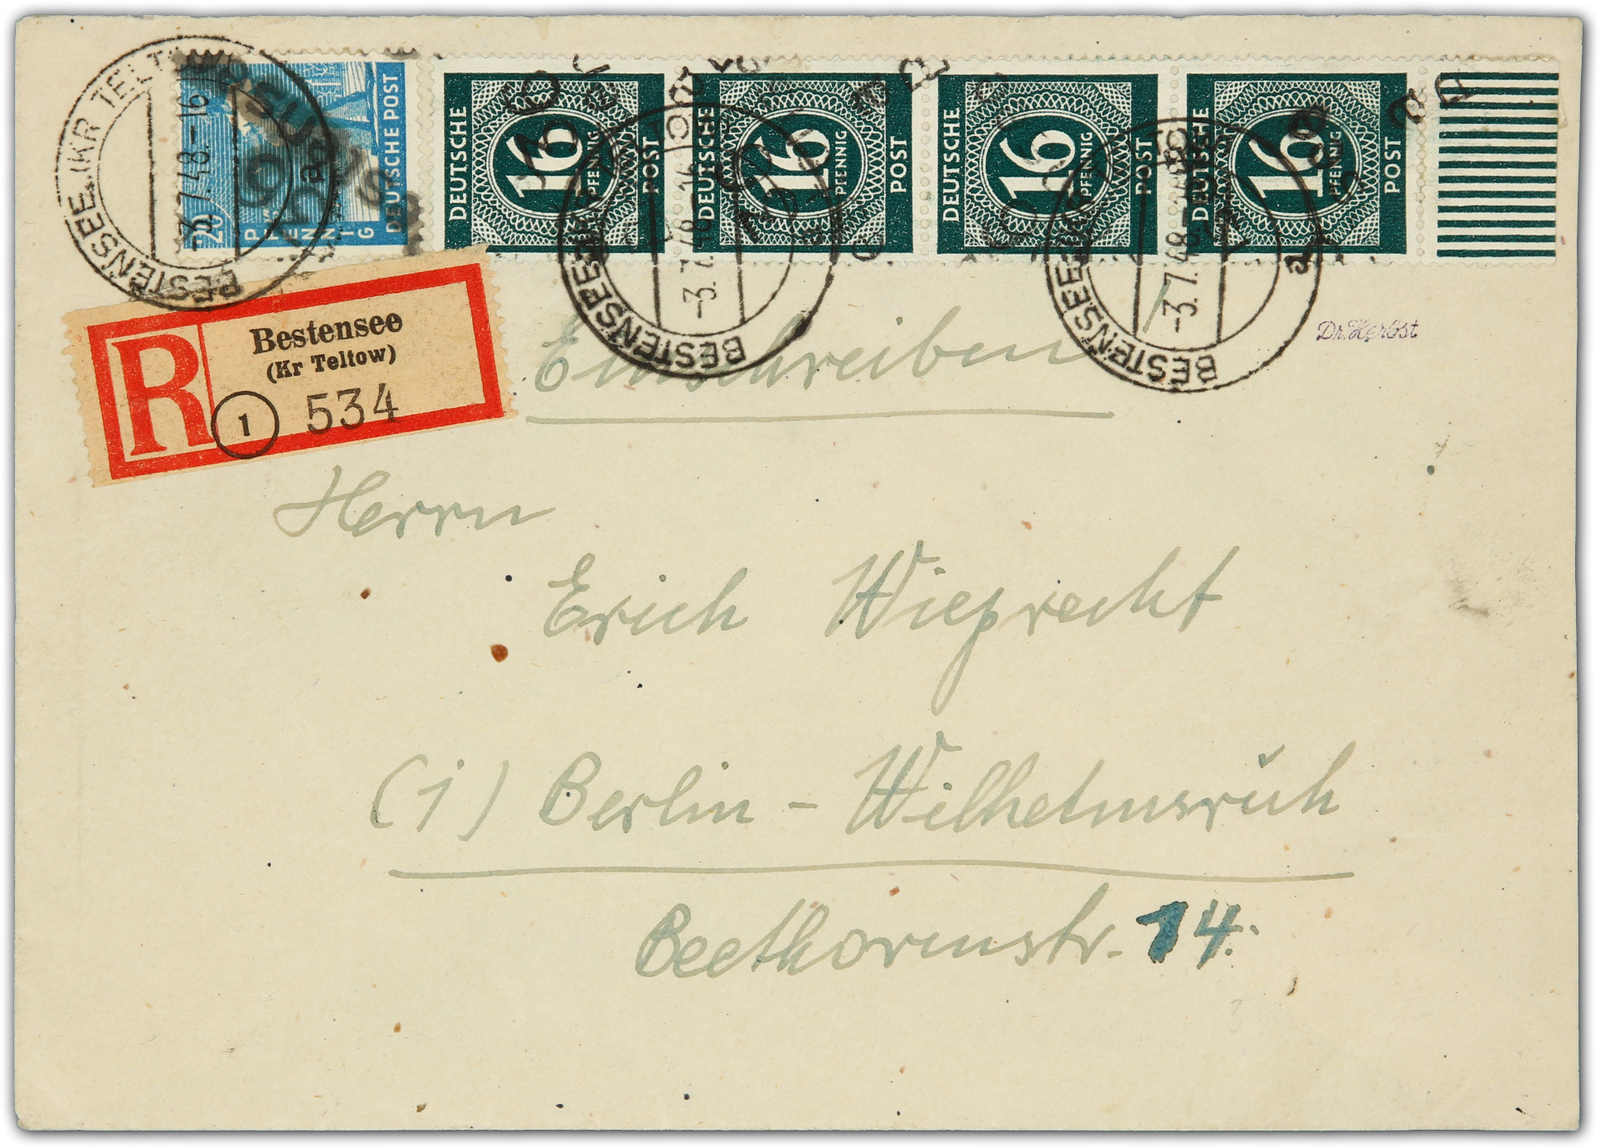 BESTENSEE (KR TELTOW)
-3.7.48.-16
a
20
PFENNIG
DEUTSCHE POST
DEUTSCHE
16
PFENNIG
POST
DEUTSCHE
16
PFENNIG
POST
DEUTSCHE
16
PFENNIG
POST
DEUTSCHE
16
PFENNIG
POST
BESTENSEE
-3.7.48.-16
BESTENSEE
-3.7.48.-16
a
R
Bestensee
(Kr Teltow)
1 534
Einschreiben
Dr. Herbst
Herrn
Erich Wieprecht
(1) Berlin - Wilhelmsruh
Beethovenstr. 14.